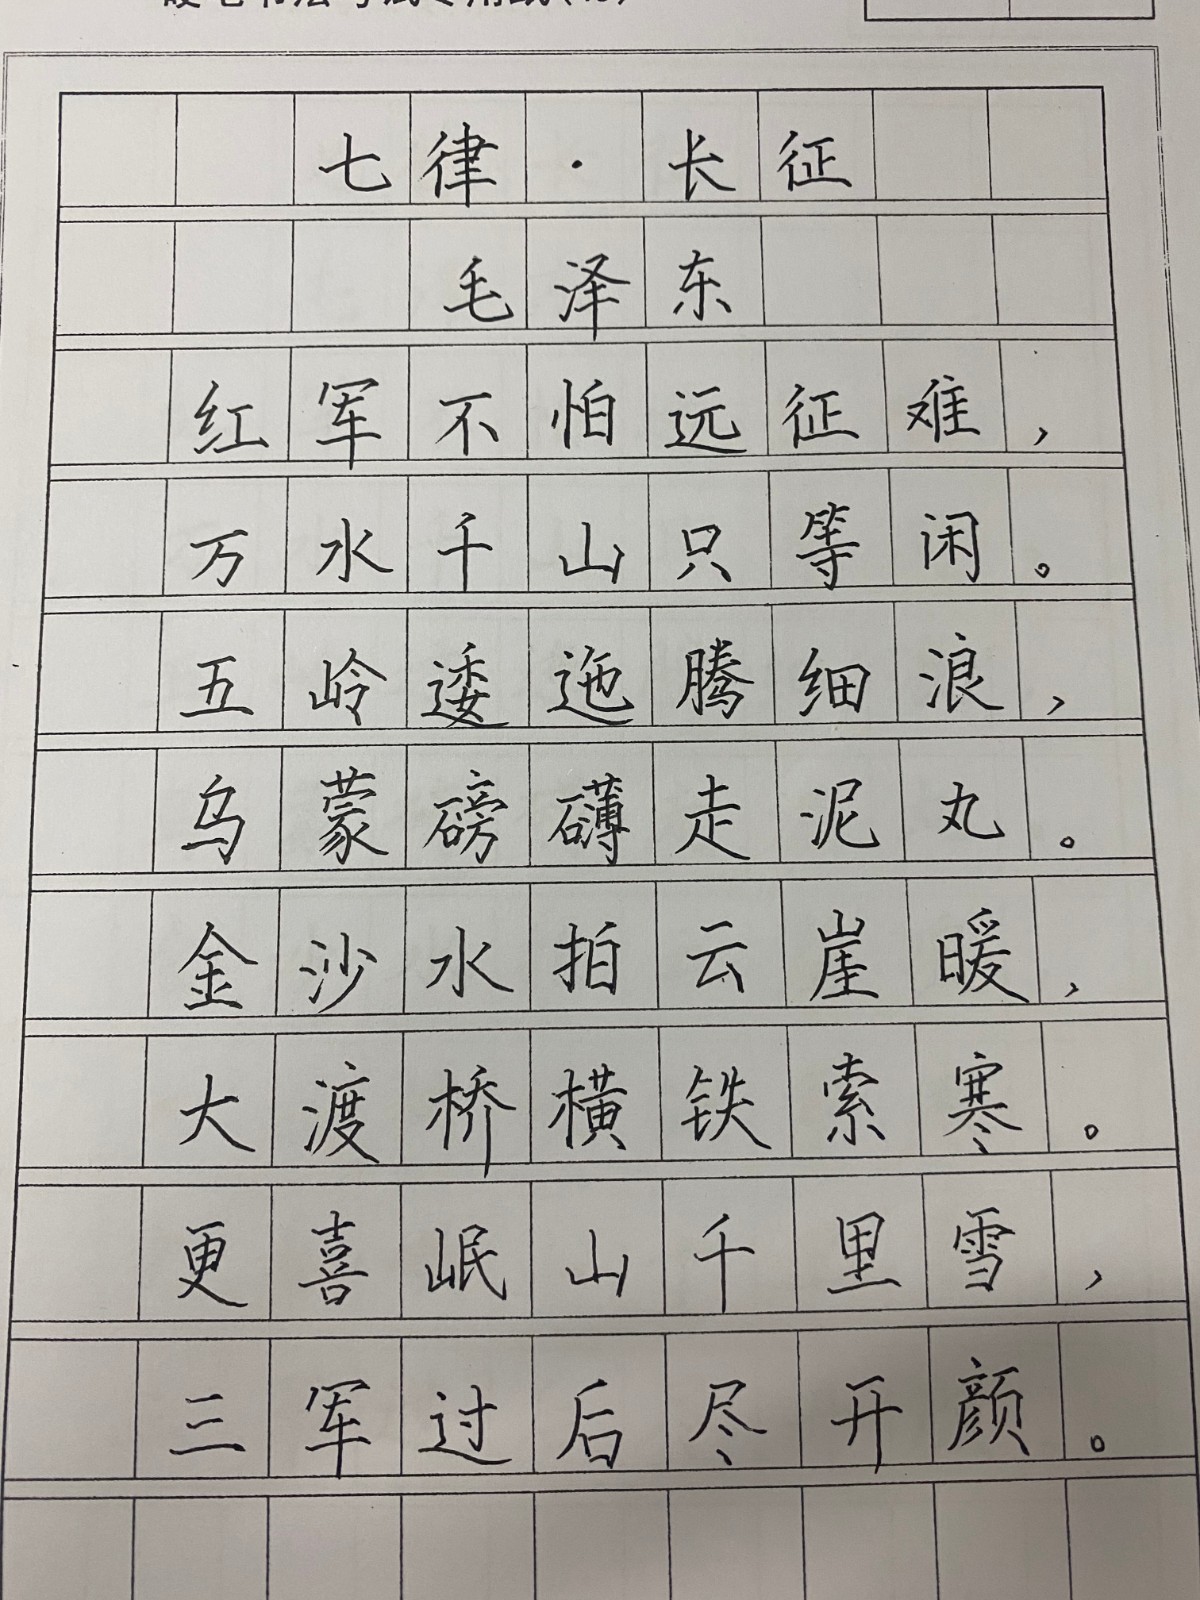 七律·长征
毛泽东
红军不怕远征难，
万水千山只等闲。
五岭逶迤腾细浪，
乌蒙磅礴走泥丸。
金沙水拍云崖暖，
大渡桥横铁索寒。
更喜岷山千里雪，
三军过后尽开颜。